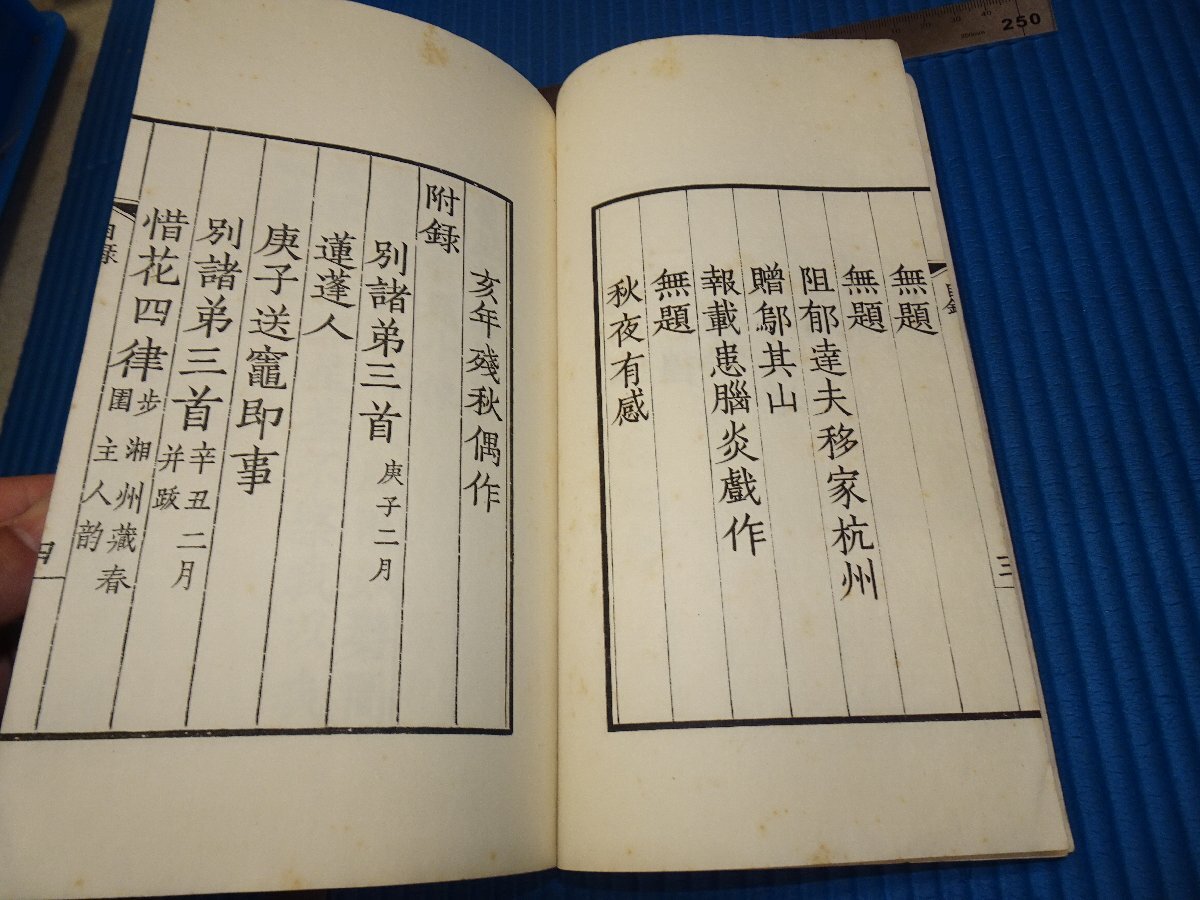 目錄
三
無題
無題
阻郁達夫移家杭州
贈鄔其山
報載患腦炎戲作
無題
秋夜有感
亥年殘秋偶作
附錄
別諸弟三首 庚子二月
蓮蓬人
庚子送竈即事
別諸弟三首 辛丑二月并跋
惜花四律 步湘州藏春園主人韵
目錄
四
250